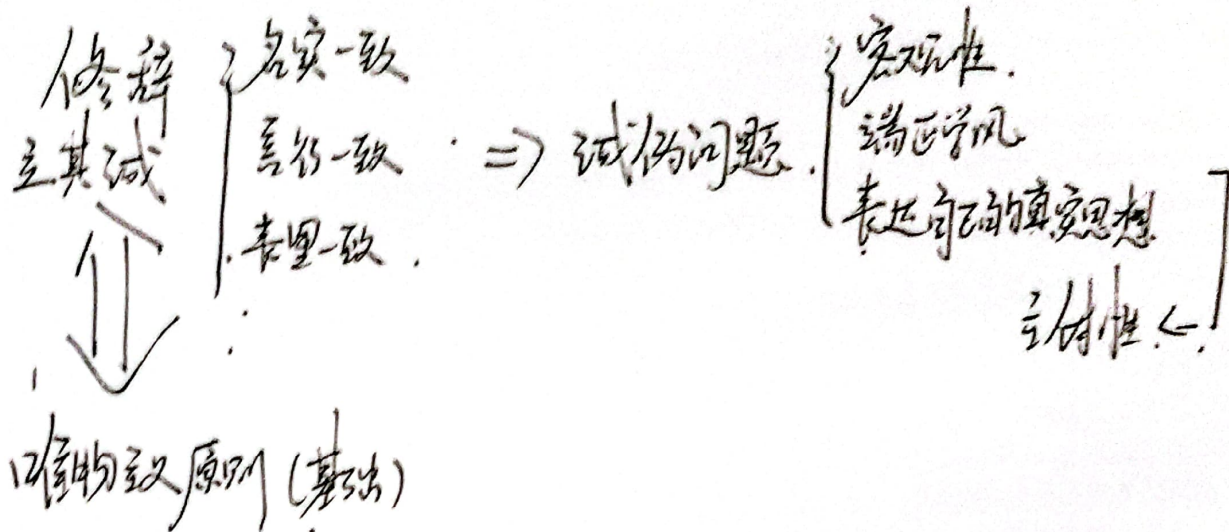 修辞
立其诚
名实一致
言行一致
表里一致.
⇒ 诚伪问题.
客观性.
端正学风
表达自己的真实思想
主体性.←
唯物主义原则(基础)